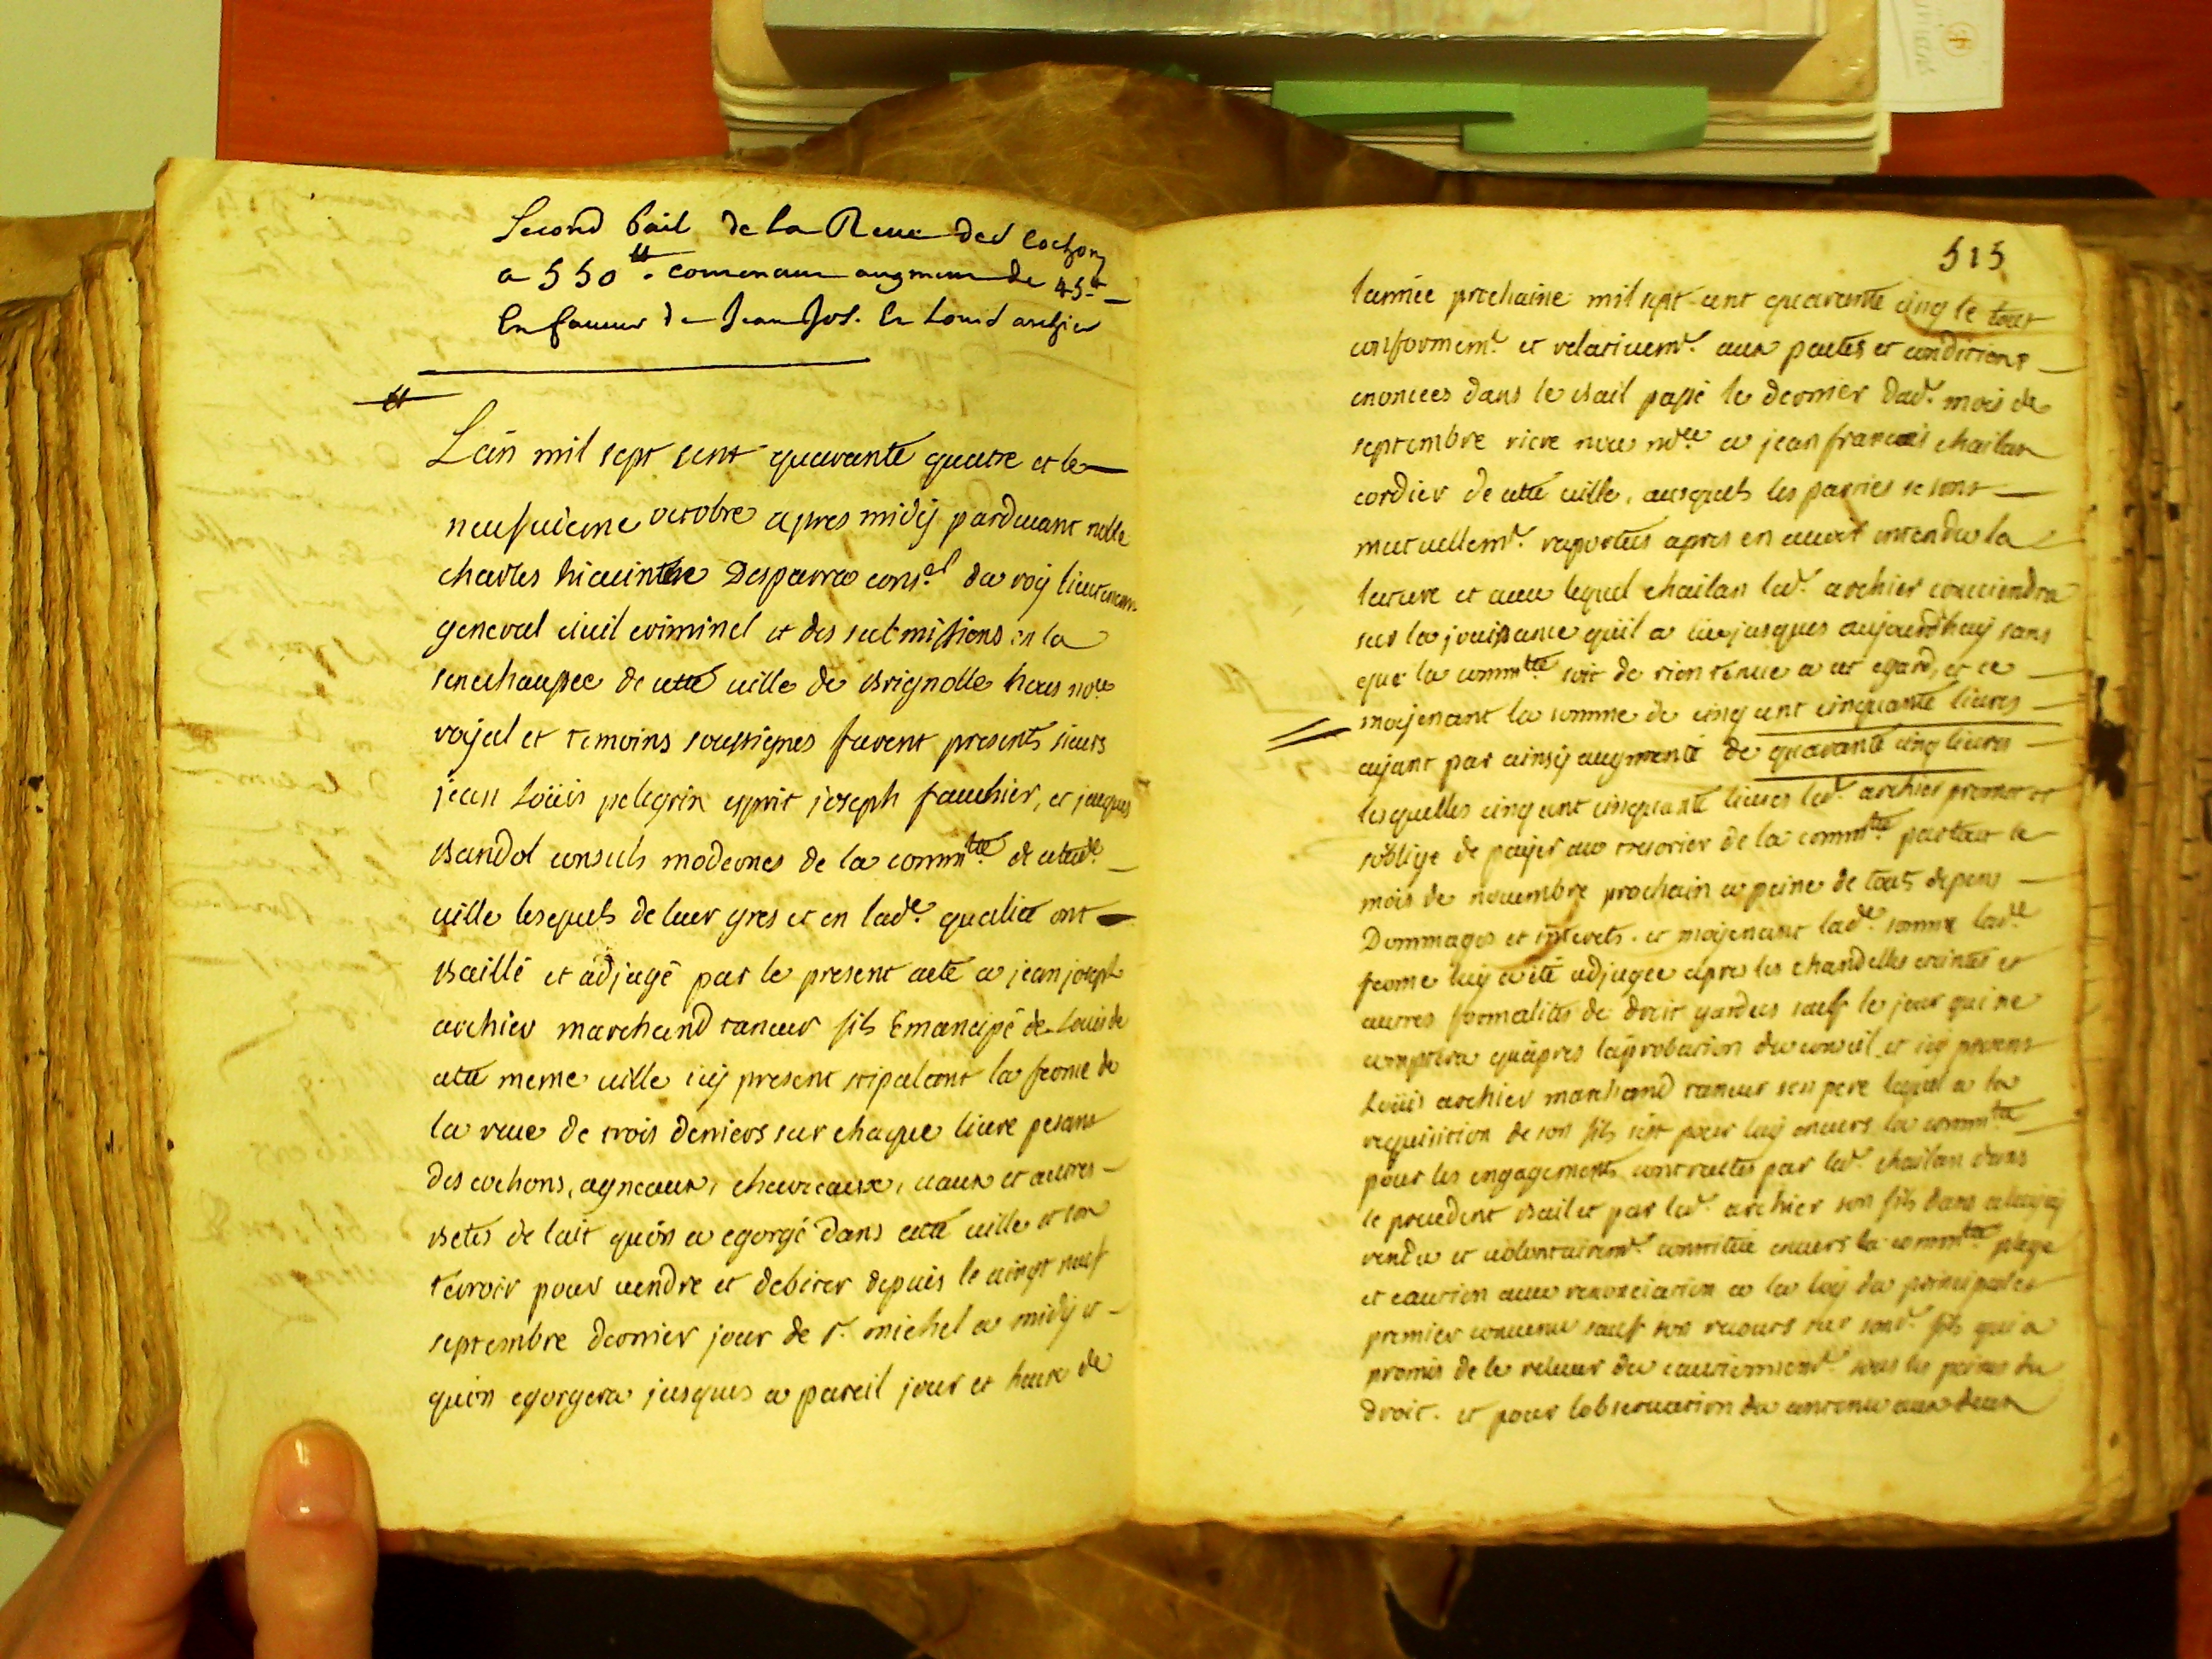 Second bail de la Reve des cochons
a 550 ₶. comenceme augment de 45 ₶
En faveur de Jean Jos. et Louis archier
L'an mil sept cent quarante quatre et le
neufvieme octobre apres midÿ pardevant noble
charles hiacinthe Desparra cons.el du roÿ lieutenant
general civil criminel et des submissions en la
senechaussée de cette ville de Brignolle nous no.re
roÿal et temoins soussignes furent presents sieurs
jean Loüis pelegrin esprit joseph fauchier, et jacques
Bandol consuls modernes de la comm.té de cetted.e
ville lesquels de leur gres et en lad.e qualité ont
Baillé et adjugé par le present acte a jean joseph
archier marchand taneur fils Emancipé de Louis de
cette meme ville icÿ present stipulant la ferme de
la reve de trois deniers sur chaque livre pesant
des cochons, agneaux, chevreaux, vaux et autres
Betes de lait qu'on a egorgé dans cette ville et son
terroir pour vendre et debiter depuis le vingt neuf
septembre dernier jour de S.t michel a midÿ et
qu'on egorgera jusques a pareil jour et heure de
515
l'année prochaine mil sept cent quarante cinq le tout
conformem.t et relativem.t aux pactes et conditions
enoncées dans le Bail passé le dernier dud.t mois de
septembre riere nous no.re a jean francois chailan
cordier de cette ville, ausquels les parties se sont
mutuellem.t raportées apres en avoir entendu la
lecture et avec lequel chailan led.t archier conviendra
sur la jouissance qu'il a eue jusques aujourd'huÿ sans
que la comm.té soit de rien tenue a cet egard, et ce
moÿenant la somme de cinq cent cinquante livres
aÿant par ainsÿ augmenté de quarante cinq livres
lesquelles cinq cent cinquante livres led.t archier promet et
s'oblige de paÿer au tresorier de la comm.té partout le
mois de novembre prochain a peine de tous depens
Dommages et interets. et moÿenant lad.e somme lad.e
ferme luÿ a été adjugée apres les chandelles eteintes et
autres formalités de droit gardées sauf le jour qui ne
comptera qu'apres l'aprobation du conseil et icÿ present
Loüis archier marchand taneur son pere lequel a la
requisition de son fils s'est pour luÿ envers la comm.té
pour les engagements contractés par led.t chailan dans
le precedent Bail et par led.t archier son fils dans celuÿ cÿ
rendu et volontairem.t constitué envers la comm.té plege
et caution avec renonciation a la loÿ du principal et
premier convenu sauf son recours sur sond.t fils qui a
promis de le relever du cautionnem.t sous les peines du
droit. et pour l'observation du contenu aux deux